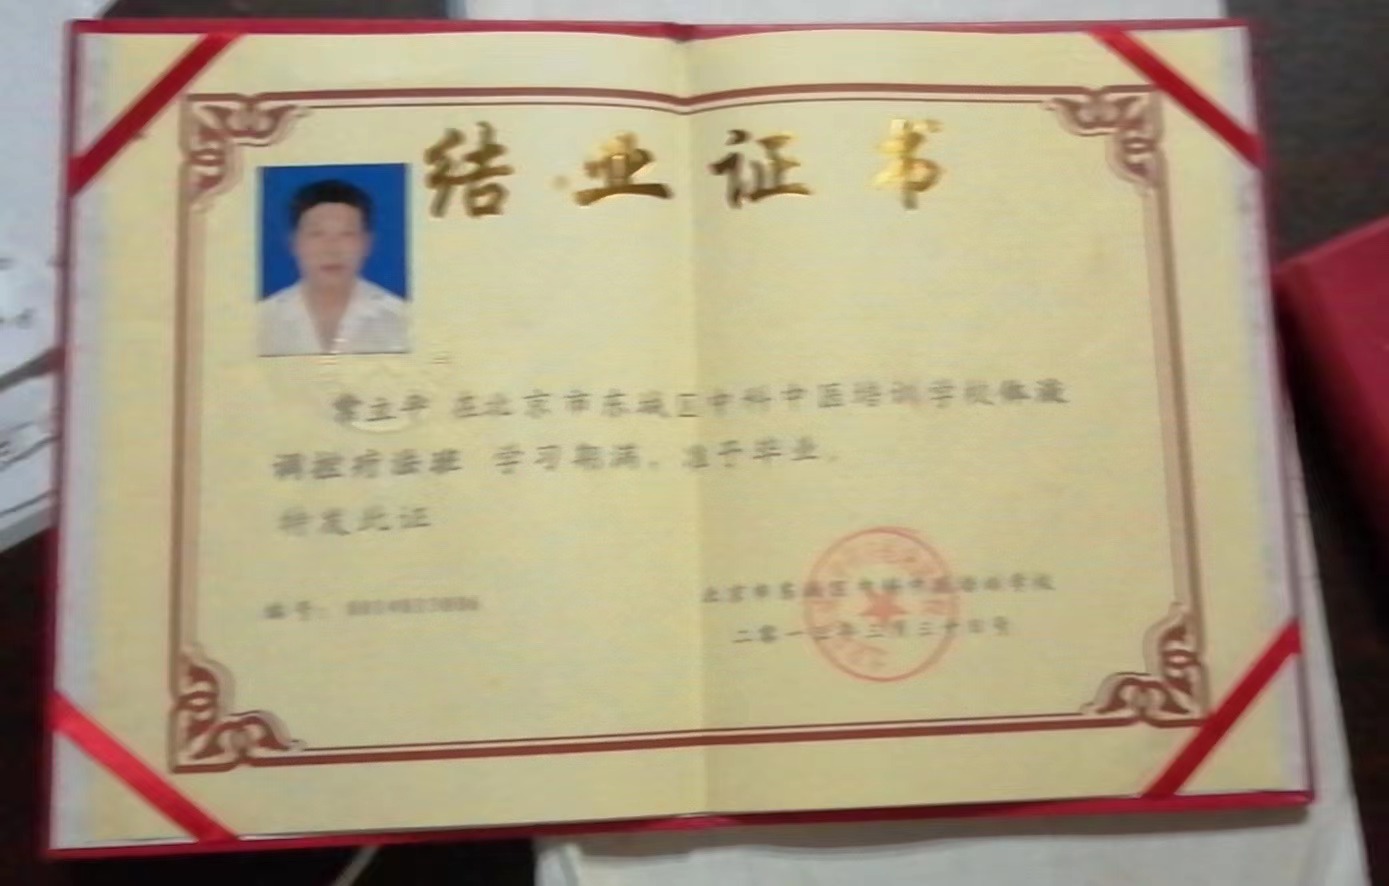 结业证书
立平 在北京市东城区中科中医培训学校体液
调控疗法班 学习期满，准于毕业。
特发此证
编号：
北京市东城区中科中医培训学校
二零一 年三月三十日号